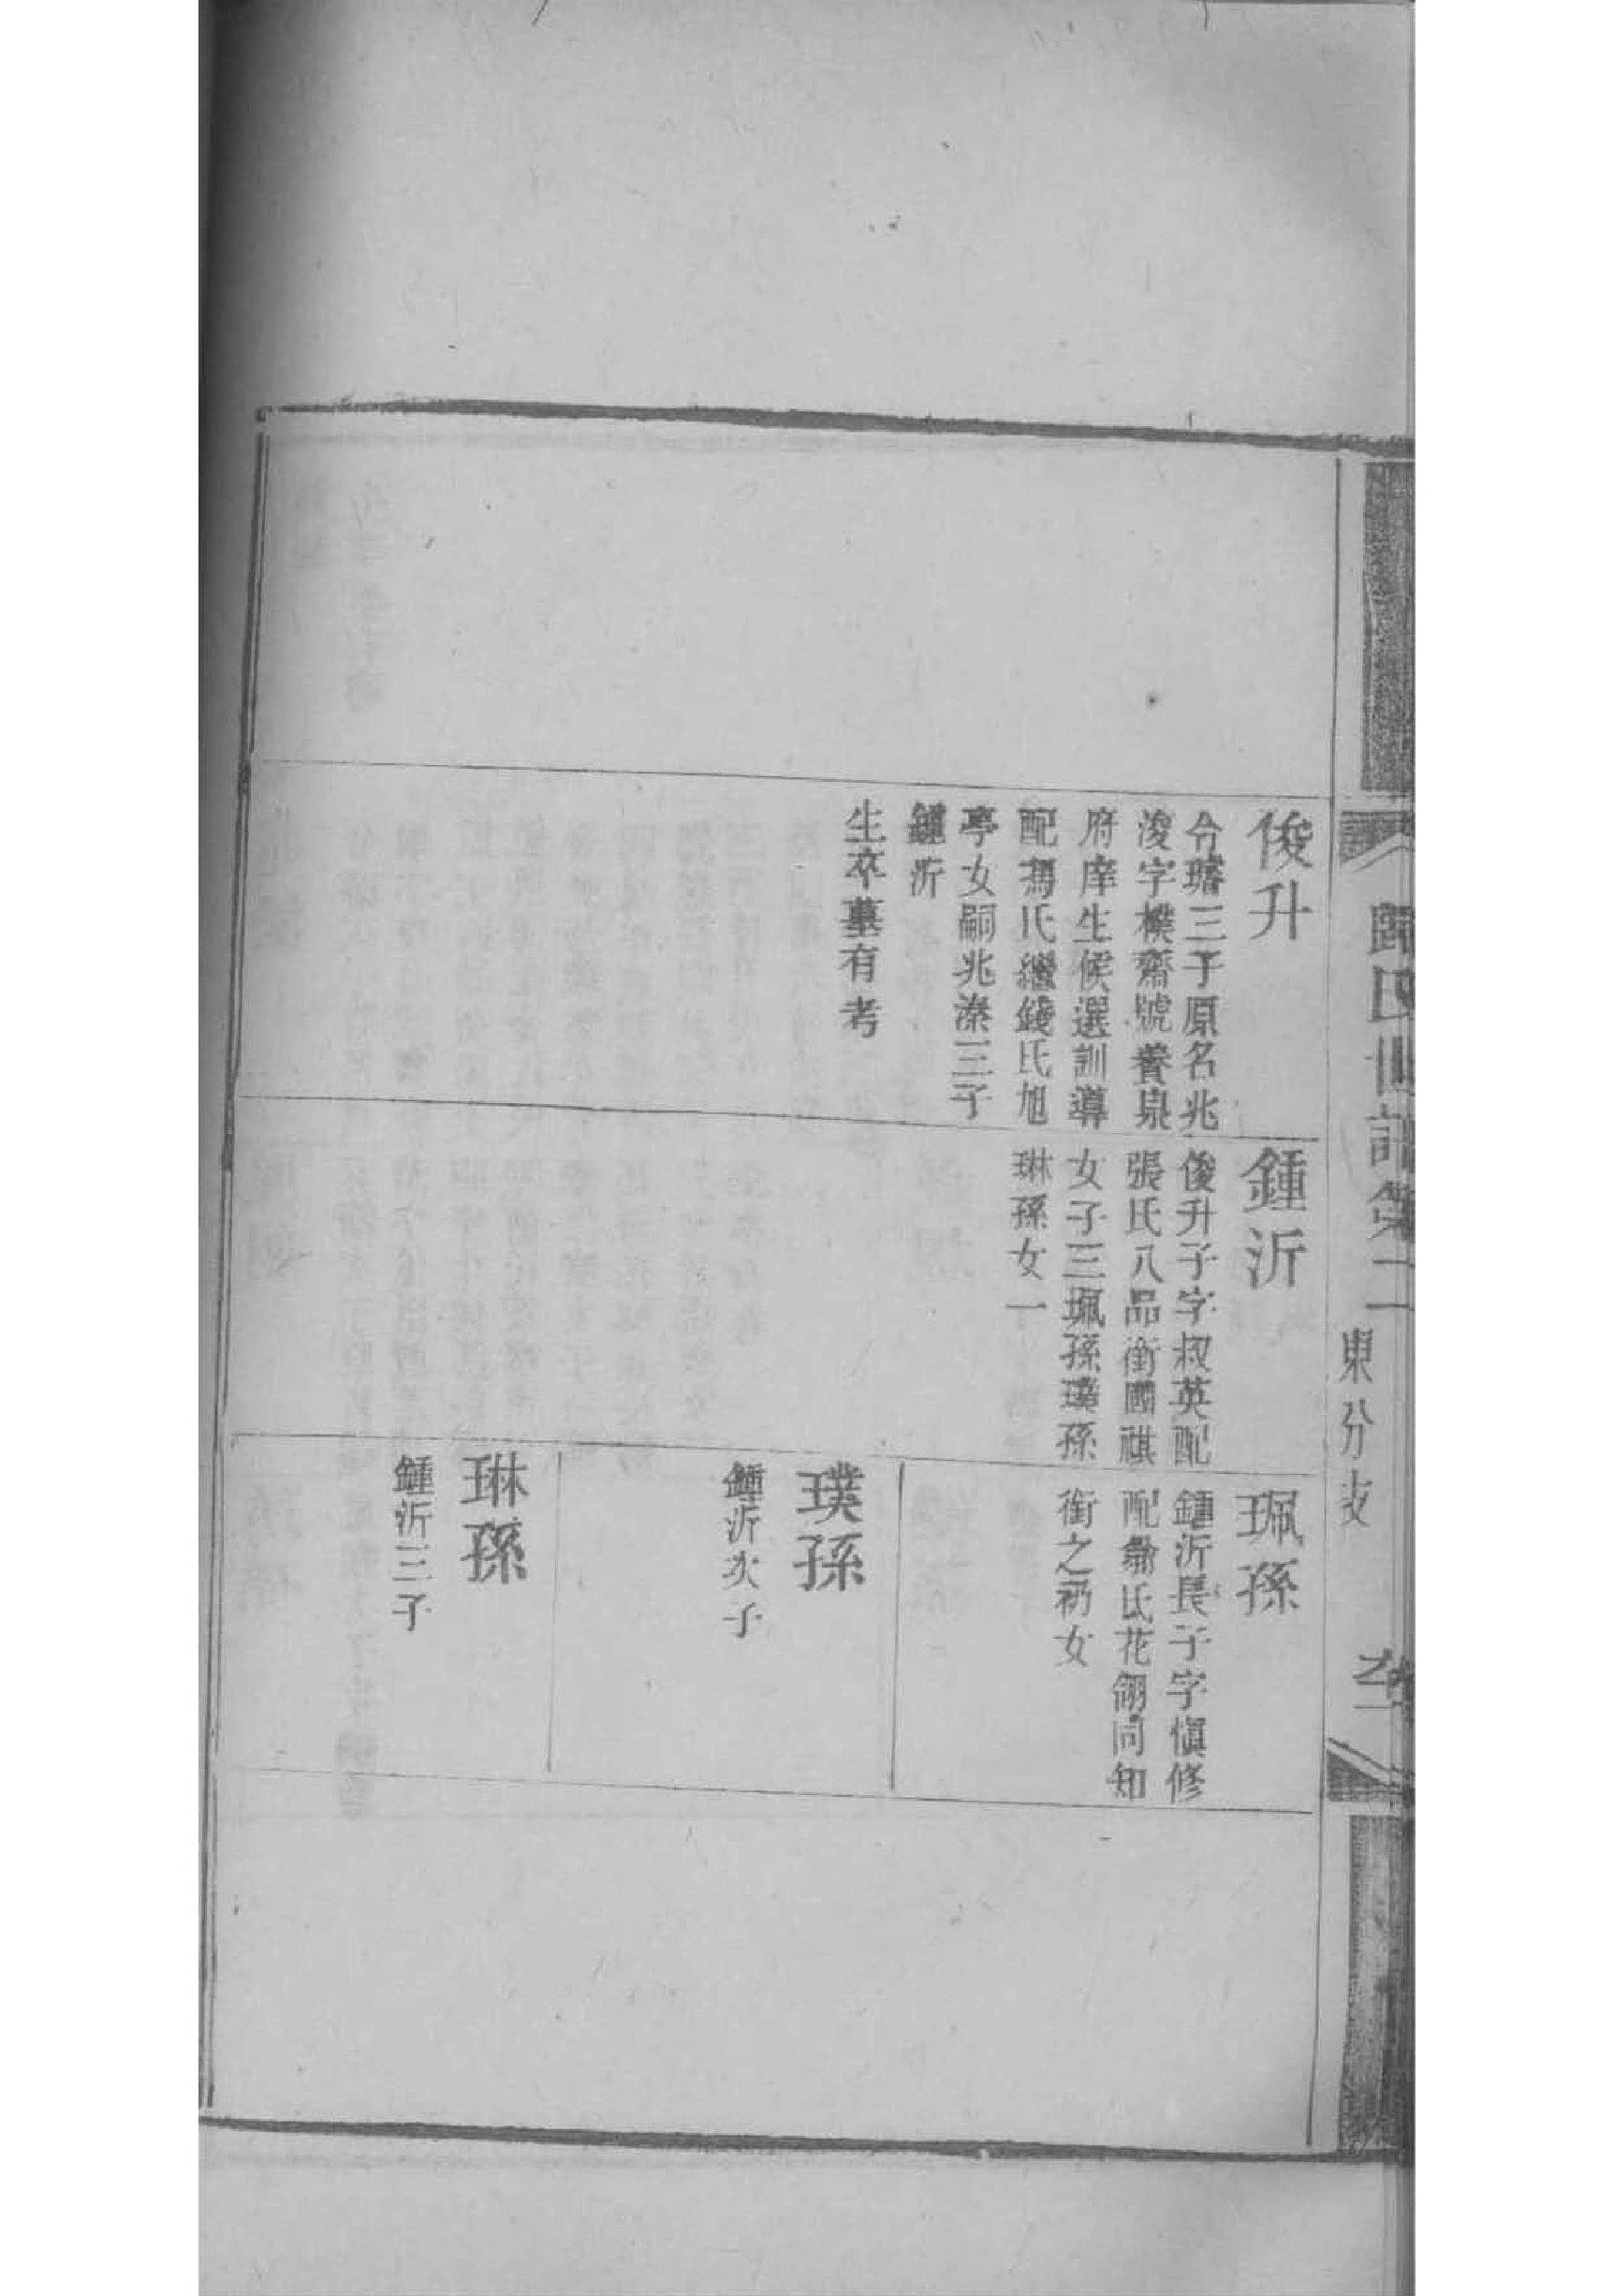 歸氏世譜第二
東分支
俊升
令璿三子原名兆
浚字樸齋號養泉
府庠生候選訓導
配馮氏繼錢氏旭
亭女嗣兆溱三子
鍾沂
生卒墓有考
鍾沂
俊升子字叔英配
張氏八品銜國祺
女子三珮孫璞孫
琳孫女一
珮孫
鍾沂長子字愼修
配翁氏花翎同知
銜之礽女
璞孫
鍾沂次子
琳孫
鍾沂三子